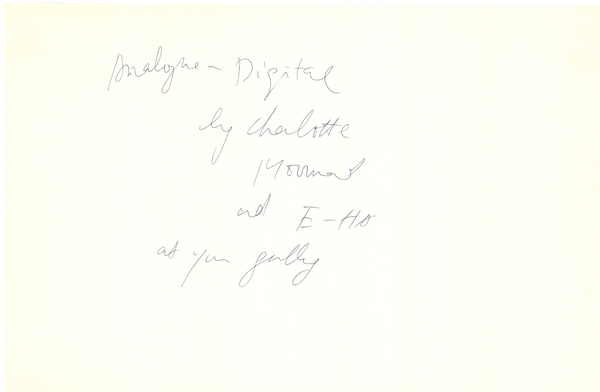 Analogue - Digital
by Charlotte
Moorman
and E-HO
at your gallery